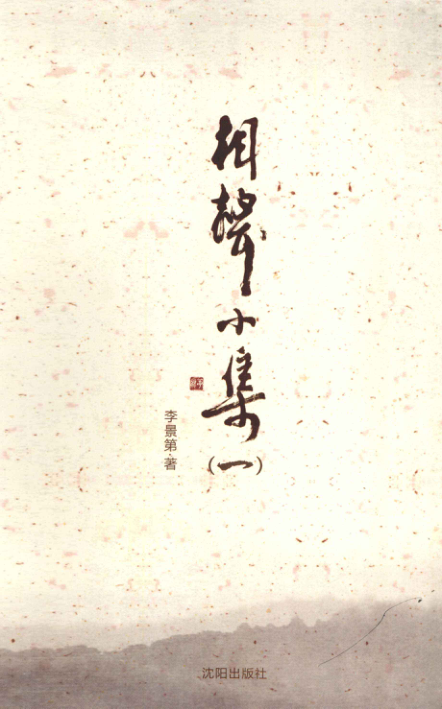 相聲小集
(一)
李景第·著
沈阳出版社